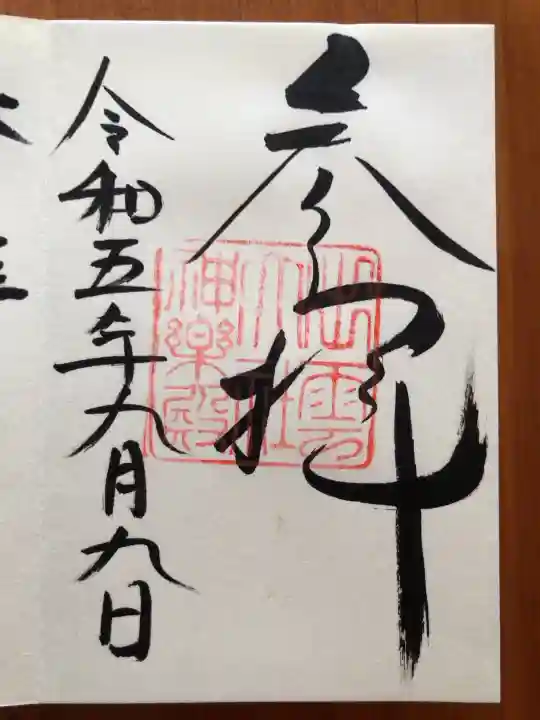 参拝
出雲
大社
神楽殿
令和五年九月九日